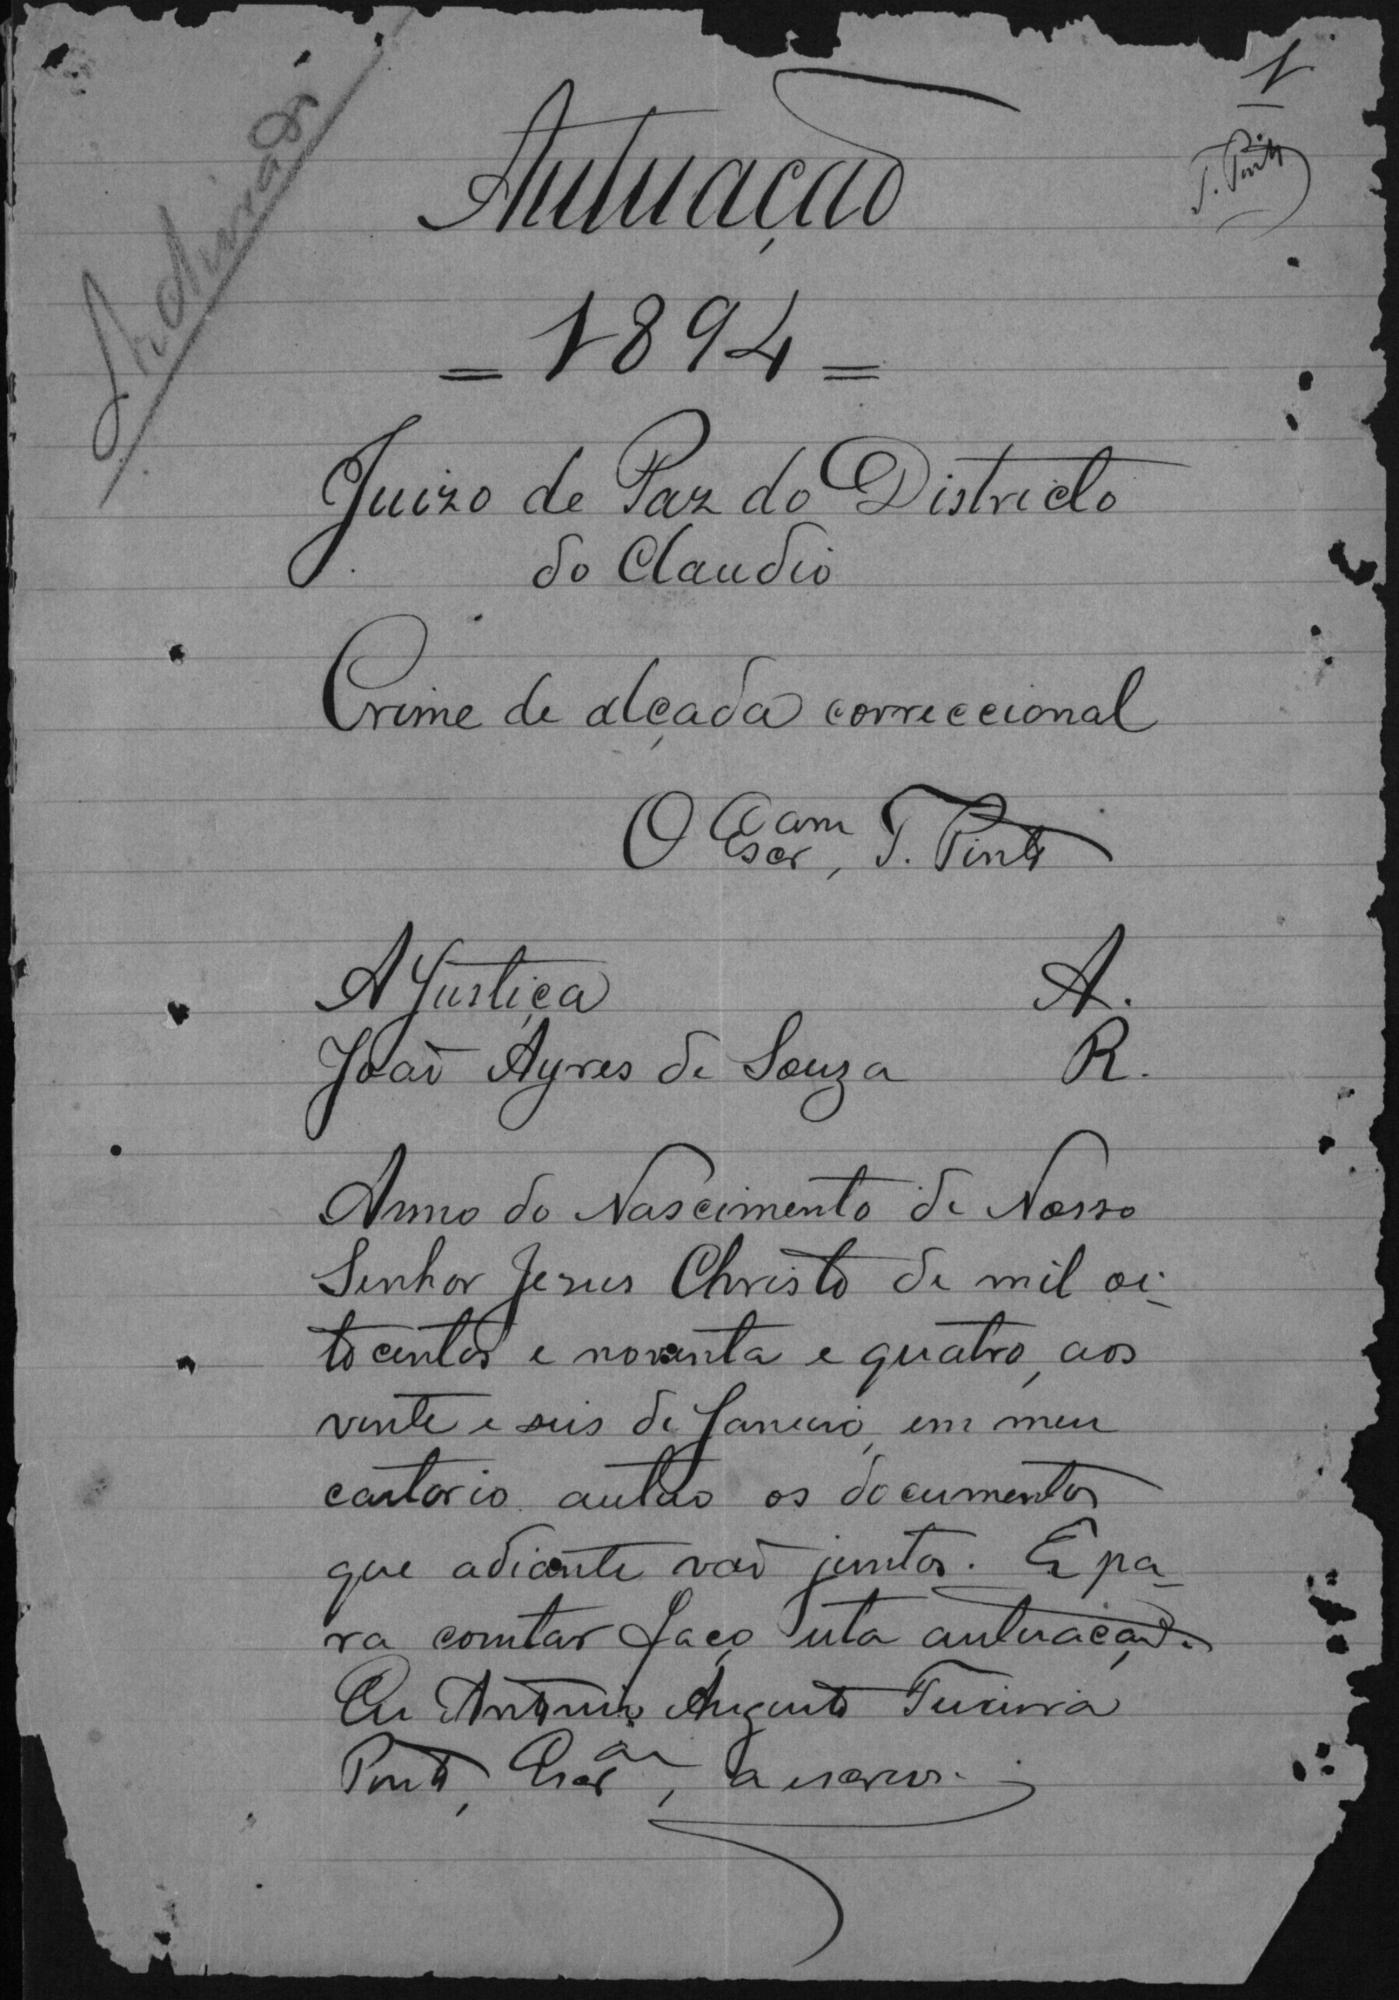 1
T. Pinto
Autuação
= 1894 =
Juizo de Paz do Districto
do Claudio
Crime de alçada correccional
O Escram, T. Pinto
A Justiça A.
João Ayres de Souza R.
Anno do Nascimento de Nosso
Senhor Jesus Christo de mil oi-
tocentos e noventa e quatro, aos
vinte e seis de Janeiro, em meu
cartorio autúo os documentos
que adiante vaõ juntos. E pa-
ra constar faço esta autuação.
Eu Antonio Augusto Teixeira
Pinto, Escram, a escrevi.